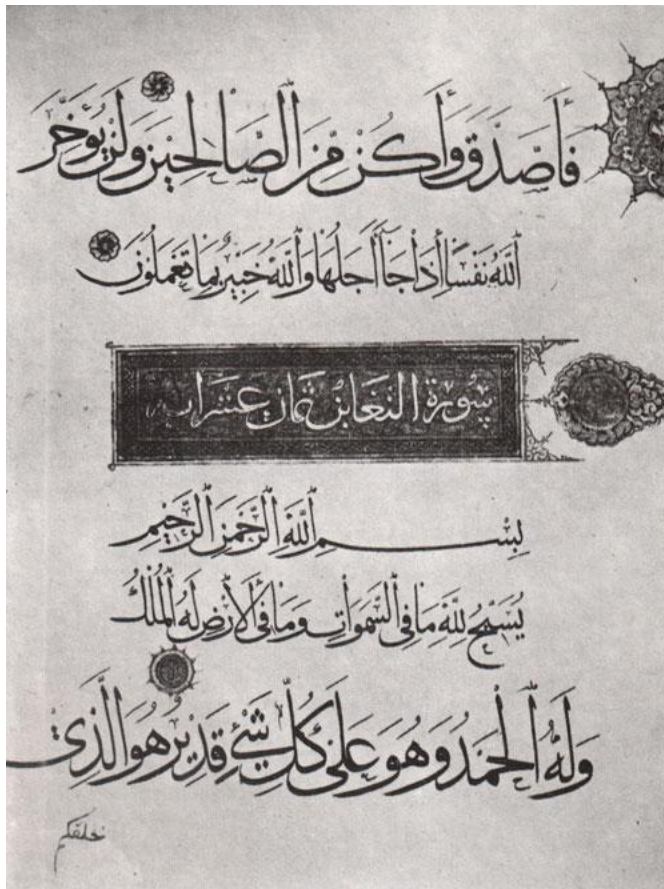 فَأَصَّدَّقَ وَأَكُن مِّنَ ٱلصَّالِحِينَ وَلَن يُؤَخِّرَ
ٱللَّهُ نَفْسًا إِذَا جَآءَ أَجَلُهَا وَٱللَّهُ خَبِيرٌ بِمَا تَعْمَلُونَ
سورة التغابن ثمان عشرايه
بِسْمِ ٱللَّهِ ٱلرَّحْمَنِ ٱلرَّحِيمِ
يُسَبِّحُ لِلَّهِ مَا فِي ٱلسَّمَوَاتِ وَمَا فِي ٱلْأَرْضِ لَهُ ٱلْمُلْكُ
وَلَهُ ٱلْحَمْدُ وَهُوَ عَلَى كُلِّ شَيْءٍ قَدِيرٌ هُوَ ٱلَّذِي
خلقكم